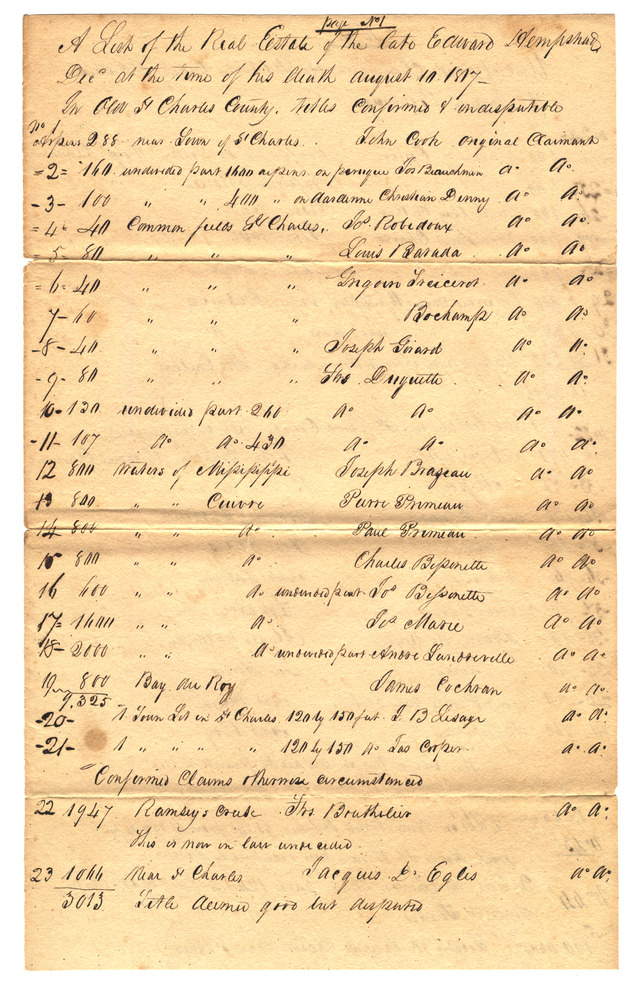 Page No 1
A List of the Real Estate of the late Edward Hempstead
Decd at the time of his death august 10. 1817-
In Old St Charles County. titles confirmed & undisputible
No Arpens 288 near Town of St Charles. John Cook original Claimant
=2= 160 undivided part 1600 arpens on peruque Jos Beauchmin do do
-3- 100 " " 400 " on dardenne Christian Denny do do
=4= 40 Common fields St Charles, Js Robedoux do do
=5= 80 " " " Louis Barada do do
=6= 40 " " " Gregoire do do
7- 60 " " " Bochamp do do
-8- 40 " " " Joseph Girard do do
-9- 80 " " " Frs Duquette do do
10- 130 undivided part 260 do do do do
-11- 107 do do 430 do do do do
12 800 Waters of Missisippi Joseph Brazeau do do
13 800 " " Cuivre Pierre Primeau do do
14 800 " " do Paul Primeau do do
15 800 " " do Charles Bissonette do do
16 600 do undivided part Js Bissonette do do
17= 1600 " " do Js Marie do do
18- 2000 do undivided part Andre Landreville do do
19 800 Bay du Roy James Cochran do do
9,325
-20- 1 Town Lot in St Charles 120 by 150 feet J B Lesage do do
-21- 1 " " " " 120 by 150 do Jas Cooper do do
Confirmed Claims otherwise circumstanced
22 1947 Ramsey's creek Frs Bouthelier do do
This is now in law undecided
23 1066 Near St Charles Jacques D. Eglis do do
3013 Title deemed good but disputed